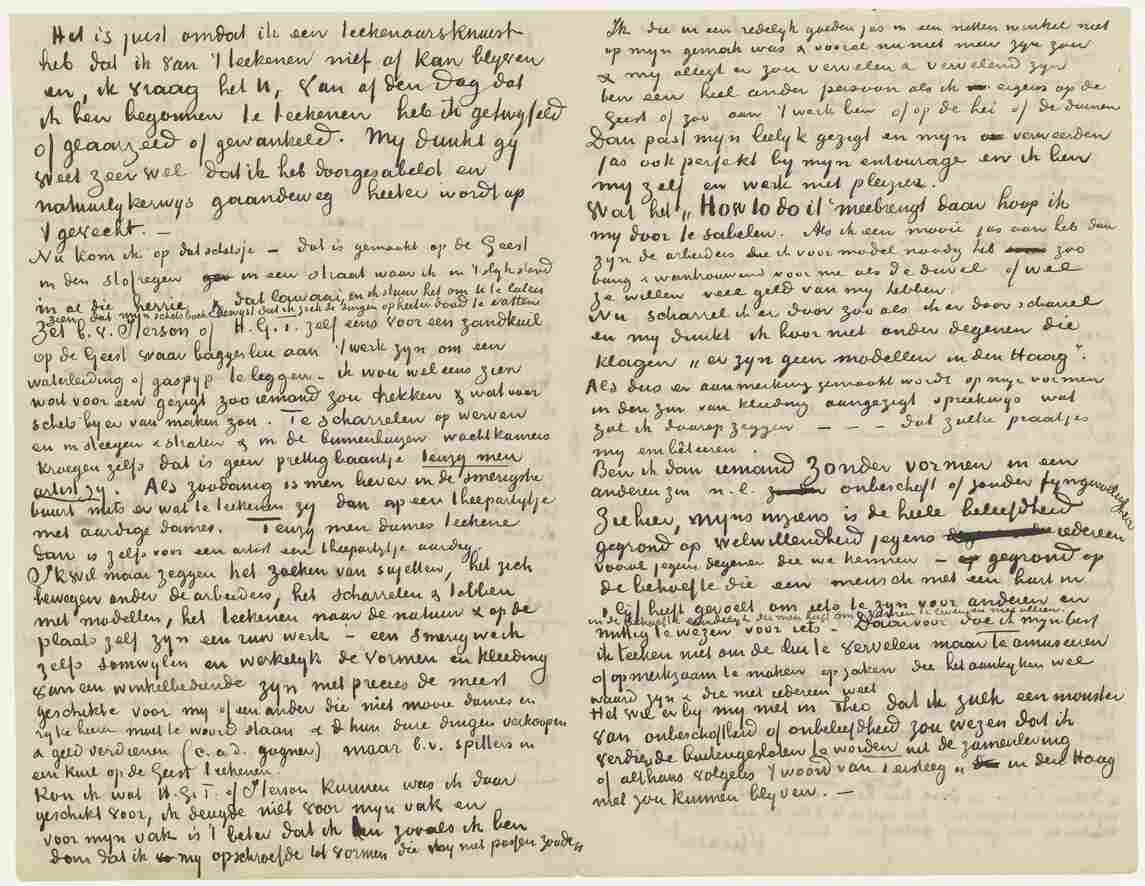 Het is juist omdat ik een teekenaarsknuist
heb dat ik van 't teekenen niet af kan blijven
en, ik vraag het U, van af den Dag dat
ik ben begonnen te teekenen heb ik getwijfeld
of geaarzeld of gewankeld. Mij dunkt gij
weet zeer wel dat ik heb doorgesabeld en
natuurlijkerwijs gaandeweg heeter wordt op
't gevecht. —
Nu kom ik op dat schetsje – dat is gemaakt op de Geest
in den stofregen in een straat waar ik in 't slijk stond
in al die herrie & dat lawaai, en ik stuur het om U te laten
zien dat mijn schetsboek bewijst dat ik zoek de dingen op heeter daad te vatten
Zet b.v. Sterson of H.G.T. zelf eens voor een zandkuil
op de Geest waar baggerlui aan 't werk zijn om een
waterleiding of gaspijp te leggen – ik wou wel eens zien
wat voor een gezigt zoo iemand zou trekken & wat voor
schets hij er van maken zou. Te scharrelen op werven
en in steegen & straten & in de binnenhuizen wachtkamers
kroegen zelfs dat is geen prettig baantje tenzij men
artist zij. Als zoodanig is men liever in de smerigste
buurt mits er wat te teekenen zij dan op een theepartijtje
met aardige dames. Tenzij men dames teekene
dan is zelfs voor een artist een theepartijtje aardig
Ik wil maar zeggen het zoeken van sujetten, het zich
bewegen onder de arbeiders, het scharrelen & tobben
met modellen, het teekenen naar de natuur & op de
plaats zelf zijn een ruw werk – een smerig werk
zelfs somwijlen en werkelijk de vormen en kleeding
van een winkelbediende zijn niet precies de meest
geschikte voor mij of een ander die niet mooie dames en
rijke heeren moet te woord staan & hun dure dingen verkoopen
& geld verdienen (c.a.d. gagner) maar b.v. spitters in
een kuil op de Geest teekenen.
Kon ik wat H.G.T. of Sterson kunnen was ik daar
geschikt voor, ik deugde niet voor mijn vak en
voor mijn vak is 't beter dat ik ben zooals ik ben
dan dat ik mij opschroefde tot vormen die mij niet passen zouden
Ik die in een redelijk goeden jas in een netten winkel niet
op mijn gemak was & vooral nu niet meer zijn zou
& mij allegt er zou vervelen & vervelend zijn
ben een heel ander persoon als ik eigens op de
Geest of zoo aan 't werk ben of op de hei of de duinen
Dan past mijn leelijk gezigt en mijn verweerden
jas ook perfekt bij mijn entourage en ik ben
mij zelf en werk met pleizier.
Wat het „How to do it" meebrengt daar hoop ik
mij door te sabelen. Als ik een mooie jas aan heb dan
zijn de arbeiders die ik voor model noodig heb zoo
bang & wantrouwend voor me als de duvel of wel
ze willen veel geld van mij hebben.
Nu scharrel ik er door zoo als ik er door scharrel
en mij dunkt ik hoor niet onder degenen die
klagen „er zijn geen modellen in den Haag".
Als dus er aanmerking gemaakt wordt op mijn vormen
in den zin van kleeding aangezigt spreekwijs wat
zal ik daarop zeggen — — — dat zulke praatjes
mij embêteeren.
Ben ik dan iemand zonder vormen in een
anderen zin n.l. onbeschoft of zonder fijngevoeligheid
Ziehier, mijns inziens is de heele beleefdheid
gegrond op welwillendheid jegens iedereen
vooral jegens degenen die we kennen – gegrond op
de behoefte die een mensch met een hart in
't lijf heeft gevoelt om iets te zijn voor anderen en
in de behoefte eindelijk die men heeft om zamen te leven en niet alleen.
nuttig te wezen voor iets – Daarvoor doe ik mijn best
ik teeken niet om de lui te vervelen maar te amuseeren
of opmerkzaam te maken op zaken die het aankijken wel
waard zijn & die niet iedereen weet
Het wil er bij mij niet in Theo dat ik zulk een monster
van onbeschoftheid of onbeleefdheid zou wezen dat ik
verdiende buitengesloten te worden uit de zamenleving
of althans volgens 't woord van Tersteeg „ in den Haag
niet zou kunnen blijven. —